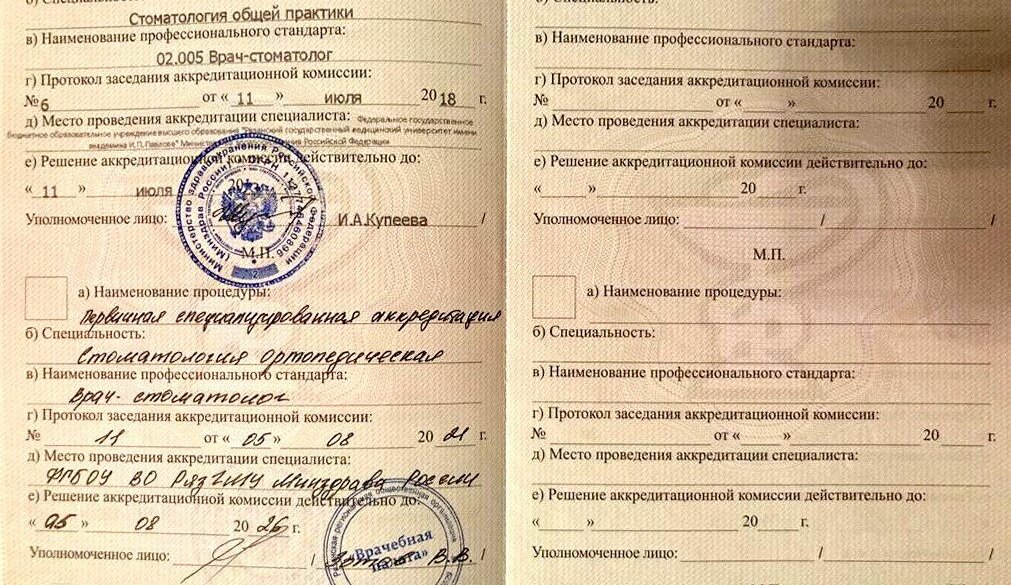 б) Специальность:
Стоматология общей практики
в) Наименование профессионального стандарта:
02.005 Врач-стоматолог
г) Протокол заседания аккредитационной комиссии:
№6 от « 11 » июля 2018 г.
д) Место проведения аккредитации специалиста: Федеральное государственное
бюджетное образовательное учреждение высшего образования "Рязанский государственный медицинский университет имени
академика И.П.Павлова" Российской Федерации
е) Решение аккредитационной комиссии действительно до:
« 11 » июля 20
Уполномоченное лицо: И.А.Купеева /
М.П.
Министерство здравоохранения Российской Федерации
(Минздрав России)
ОГРН 1127746460896
2
а) Наименование процедуры:
Первичная специализированная аккредитация
б) Специальность:
Стоматология ортопедическая
в) Наименование профессионального стандарта:
Врач-стоматолог
г) Протокол заседания аккредитационной комиссии:
№ 11 от « 05 » 08 2021 г.
д) Место проведения аккредитации специалиста:
ФГБОУ ВО РязГМУ Минздрава России
е) Решение аккредитационной комиссии действительно до:
« 05 » 08 2026 г.
Уполномоченное лицо: / В.В. /
Рязанская региональная общественная организация
«Врачебная
палата»
б) Специальность:
в) Наименование профессионального стандарта:
г) Протокол заседания аккредитационной комиссии:
№ от « » 20 г.
д) Место проведения аккредитации специалиста:
е) Решение аккредитационной комиссии действительно до:
« » 20 г.
Уполномоченное лицо: / /
М.П.
а) Наименование процедуры:
б) Специальность:
в) Наименование профессионального стандарта:
г) Протокол заседания аккредитационной комиссии:
№ от « » 20 г.
д) Место проведения аккредитации специалиста:
е) Решение аккредитационной комиссии действительно до:
« » 20 г.
Уполномоченное лицо: / /